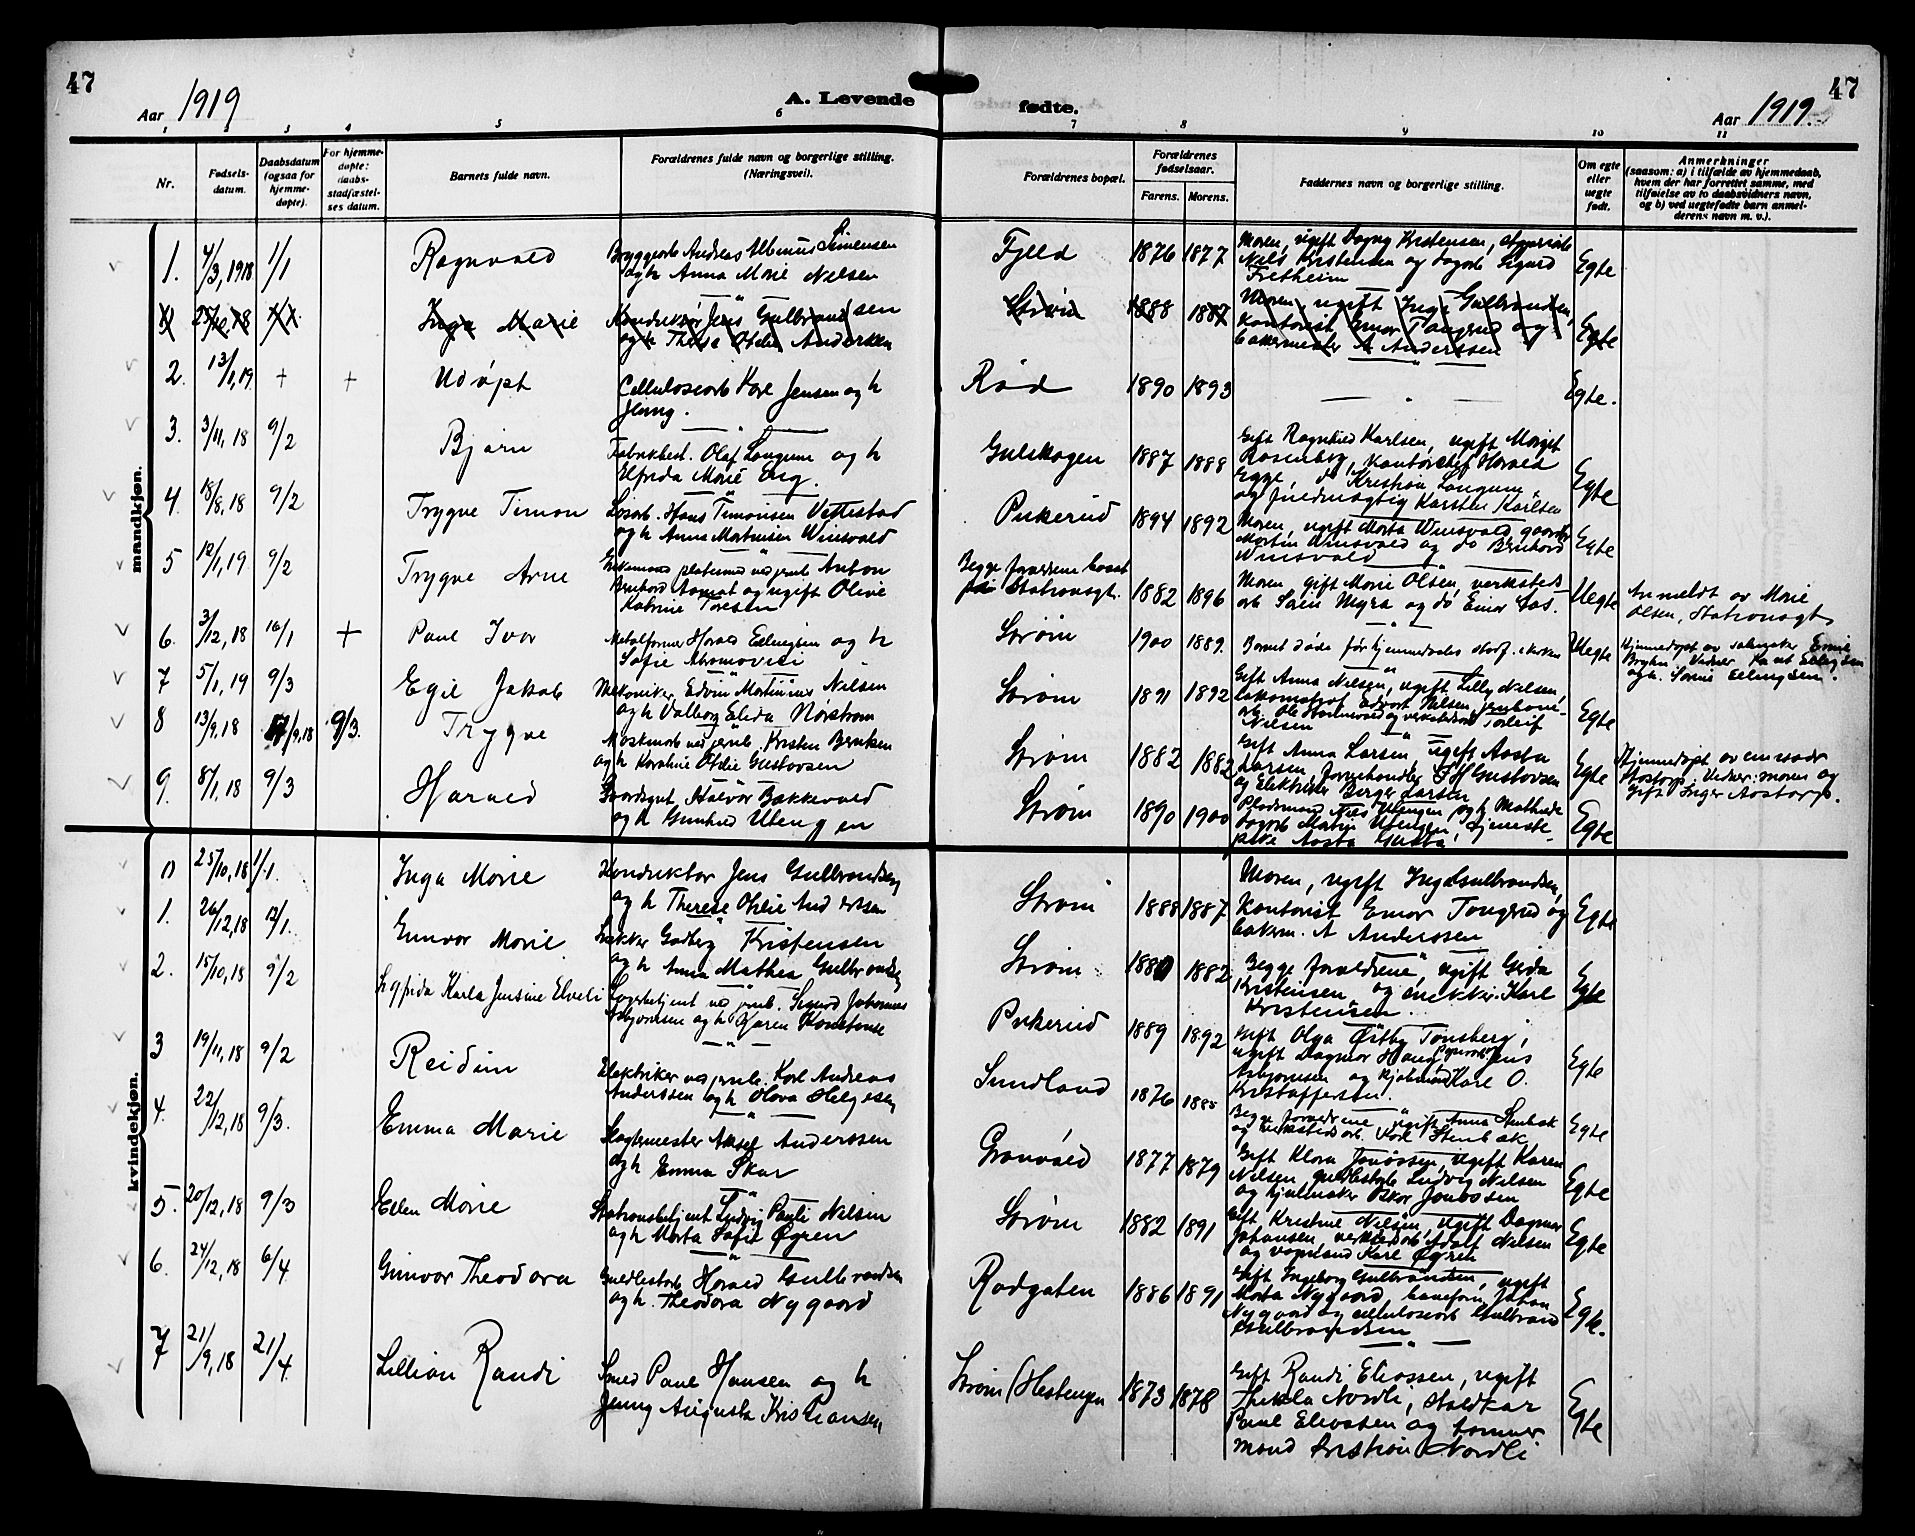 47
Aar 1919
A. Levende
fødte.
Aar 1919.
47
1 2 3 4 5 6 7 8 9 10 11
Nr.
Fødsels-
datum.
Daabsdatum
(ogsaa for
hjemme-
døpte).
For hjemme-
døpte:
daabs-
stadfæstel-
ses datum.
Barnets fulde navn.
Forældrenes fulde navn og borgerlige stilling.
(Næringsvei).
Forældrenes bopæl.
Forældrenes
fødselsaar.
Farens. Morens.
Faddernes navn og borgerlige stilling.
Om egte
eller
uegte
født.
Anmerkninger
(saasom: a) i tilfælde av hjemmedaab,
hvem der har forrettet samme, med
tilføielse av to daabsvidners navn,
og b) ved uegtefødte barn anmel-
derens navn m. v.).
mandkjøn.
1. 4/3, 1918 1/1 Ragnvald
Andreas Albinus Simensen
og h Anna Marie Nielsen
Fjeld 1876 1877
Moren, ugift Dagny Kristensen,
Nils Kristensen og Sigurd
Fretheim
Egte
Inga Marie
Konduktør Jens Gulbrandsen
og h Therese Otelie Anderssen
Strøm 1888 1887
Moren, ugift Inga Gulbrandsen,
Kontorist Einar Tangrud og
bakermester A Anderssen
Egte
2. 13/1, 19 + + Udøpt
Cellulosearb Karl Jensen og h
Jenny.
Rød 1890 1893 Egte.
3. 3/11, 18 9/2 Bjarn
Olaf Langum og h
Elfrida Marie Eng.
Gulskogen 1887 1888
Gift Ragnhild Karlsen, ugift Margit
Rosenberg, Kontorchef Harald
Egge, do Kristian Langum
og fuldmægtig Karsten Karlsen
Egte
4. 18/8, 18 9/2 Trygve Timan
Hans Timansen Vettestad
og h Anna Martinsen Winsvald
Pukerud 1894 1892
Moren, ugift Marta Winsvald,
Martin Winsvald og do Bernhard
Winsvald
Egte
5 12/1, 19 9/2 Trygve Arne
ved jernb Anton
Bernhard og ugift Olive
Katrine Toresen
Begge forældrene bosat
Stationsgt. 1882 1896
Moren, gift Marie Olsen, verksteds
arb Søren Myra og do Einar Aas.
Uegte
Anmeldt av Marie
Olsen, Stationsgt
6. 3/12, 18 16/1 + Paul Ivar
Metalformer Harald Ellingsen og h
Sofie
Strøm 1900 1889.
Barnet døde før hjemmedaabs stadf. i kirken
Uegte
Hjemmedøpt av
Vidner: Knut Ellingsen
og h. Ellingsen.
7 5/1, 19 9/3 Egil Jakob
Mekaniker Edvin Martinius Nilsen
og h Valborg Elida Nørstrøm
Strøm 1891 1892
Gift Anna Nilsen, ugift Lilly Nilsen,
Edvart Nilsen,
Nilsen
Egte
8 13/9, 18 9/3. Trygve
ved jernb. Kristen Berntsen
og h Karoline Otelie Gustavsen
Strøm 1882 1882
Gift Anna Larsen, ugift Aasta
Larsen, Gustavsen
og Elektriker Berger Larsen
Egte
Hjemmedøpt av
Vidner: moren og
gift Inger Aastorp.
9. 8/1, 18 9/3 Harald
Gaardsgut Halvor Bakkevold
og h Gunhild Utengen
Strøm 1890 1900
Nils Utengen og h Mathilde
Martin Utengen, tjeneste-
pike Aasta
Egte
kvindekjøn.
0 25/10, 18 1/1. Inga Marie
Konduktør Jens Gulbrandsen
og h Therese Otelie Anderssen
Strøm 1888 1887
Moren, ugift Inga Gulbrandsen,
Kontorist Einar Tangrud og
bakerm. A Anderssen
Egte
1. 26/12, 18 12/1. Gunvor Marie.
Snekker Godberg Kristensen
og h Anna Mathea Gulbrandsen
Strøm 1882
Begge forældrene, ugift Gerda
Kristensen og snekker Karl
Kristensen.
Egte
2. 15/10, 18 9/2 Karla Jensine Elveli
Lagerbetjent ved jernb. Sigurd Johannes
Asbjørnsen og h Karen Konstanse
Pukerud 1889 1892
Gift Olga Østby Tønsberg,
ugift Dagmar Haug, Jens
Asbjørnsen og Karl O.
Kristoffersen.
Egte
3 19/11, 18 9/2 Reidun
Elektriker ved jernb. Karl Andreas
Anderssen og h Olava Helgesen
Sundland 1876 1885
Begge forældrene, ugift Anna Stenbak
og verkstedsarb. Karl Stenbak
Egte
4. 22/12, 18 9/3. Emma Marie
Slagtermester Aksel Anderssen
og h Emma Skar
Grønvold 1877 1879
Gift Klara Jonassen, ugift Karen
Nilsen, Ludvig Nilsen
og hjulmaker Oskar Jonassen
Egte
5. 20/12, 18 9/3 Ellen Marie
Stationsbetjent Ludvig Pauli Nilsen
og h Marta Sofie Øgren
Strøm 1882 1891
Gift Kristine Nilsen, ugift Dagmar
Johansen, verkstedsarb Adolf Nilsen
og vognmand Karl Øgren
Egte
6. 24/12, 18 6/4 Gunvor Theodora
Harald Gulbrandsen
og h. Theodora Nygaard
Rødgaten 1886 1891
Gift Ingeborg Gulbrandsen, ugift
Marta Nygaard, Johan
Nygaard og cellulosearb Gulbrand
Gulbrandsen
Egte.
7 21/9, 18 21/4 Lillian Randi
Smed Paul Hansen og h
Jenny Augusta Kristiansen
Strøm (Hestengen 1873 1878
Gift Randi Eliassen, ugift
Thekla Nordli,
Paul Eliassen og tømmer
mand Kristian Nordli
Egte